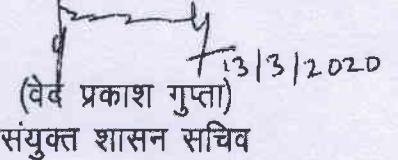 13/3/2020
(वेद प्रकाश गुप्ता)
संयुक्त शासन सचिव